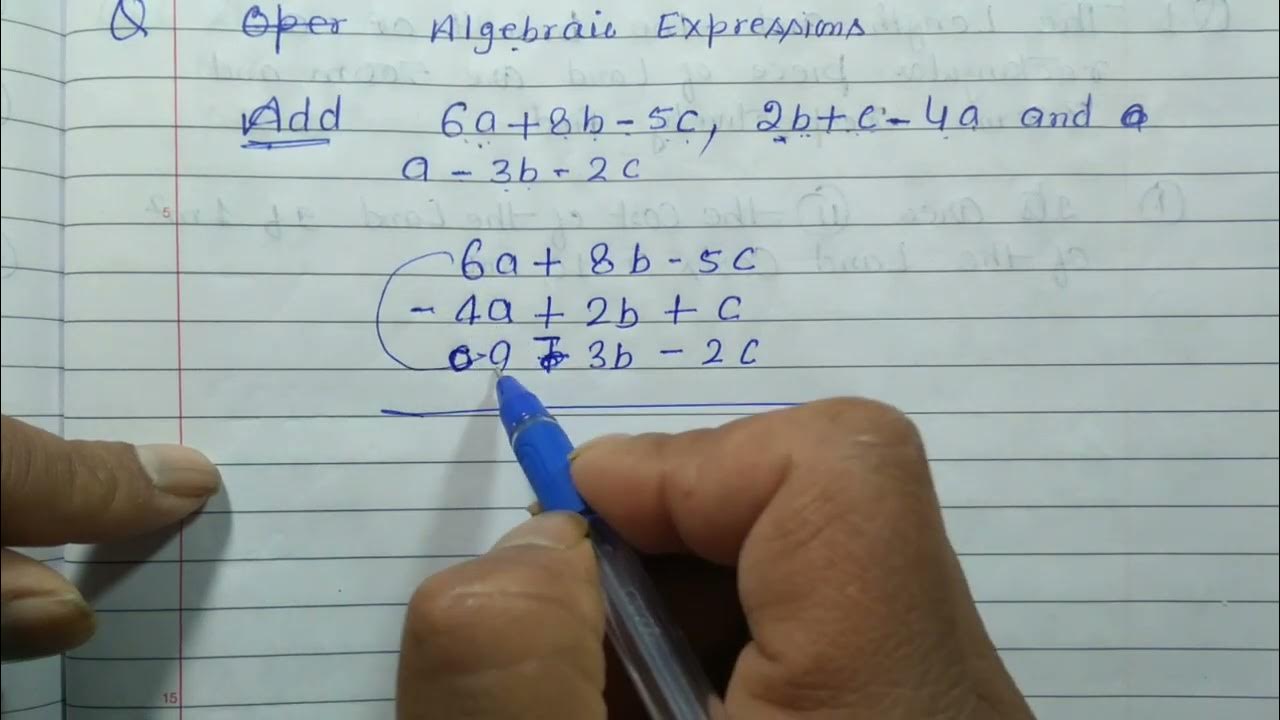 Q Oper Algebraic Expressions
Add 6a + 8b - 5c, 2b + c - 4a and
a - 3b - 2c
5
6a + 8b - 5c
- 4a + 2b + c
a - 3b - 2c
15